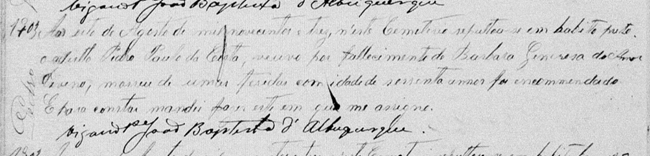 Vigario João Baptista d'Albuquerque
1903 Aos sete de Agosto de mil novecentos e tres, neste Cemeterio sepultou-se em habito preto
o adulto Pedro Paulo da Costa, viuvo por fallecimento de Barbara Generosa do Amor
Divino, morreu de umas feridas com idade de sessenta annos foi encommendado
Pedro
E para constar mandei fazer este em que me assigno.
Vigario João Baptista d'Albuquerque.